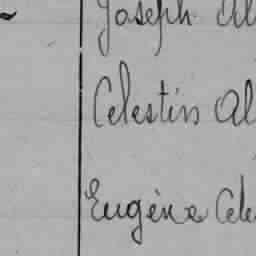 Joseph Al
Celestin Al
Eugène Cele